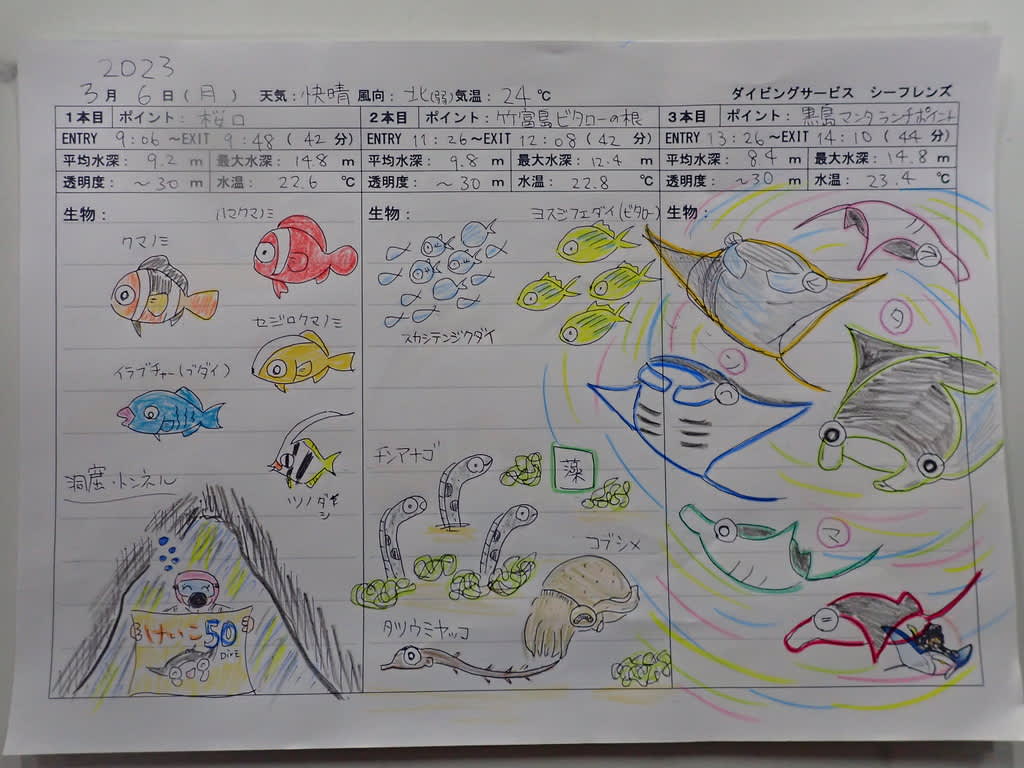 2023
3月 6日(月) 天気:快晴 風向:北(弱)気温:24℃ ダイビングサービス シーフレンズ
1本目 ポイント:桜口
ENTRY 9:06 ～EXIT 9:48 (42 分)
平均水深: 9.2 m 最大水深: 14.8 m
透明度: ～30 m 水温: 22.6 ℃
生物:
ハマクマノミ
クマノミ
セジロクマノミ
イラブチャー(ブダイ)
ツノダシ
洞窟・トンネル
けいこ50
Dive
2本目 ポイント:竹富島ビタローの根
ENTRY 11:26 ～EXIT 12:08 (42 分)
平均水深: 9.8 m 最大水深: 12.4 m
透明度: ～30 m 水温: 22.8 ℃
生物:
ヨスジフエダイ(ビタロー)
スカシテンジクダイ
チンアナゴ
藻
コブシメ
タツウミヤッコ
3本目 ポイント:黒島マンタランチポイント
ENTRY 13:26 ～EXIT 14:10 (44 分)
平均水深: 8.4 m 最大水深: 14.8 m
透明度: ～30 m 水温: 23.4 ℃
生物:
ワ
ン
マ